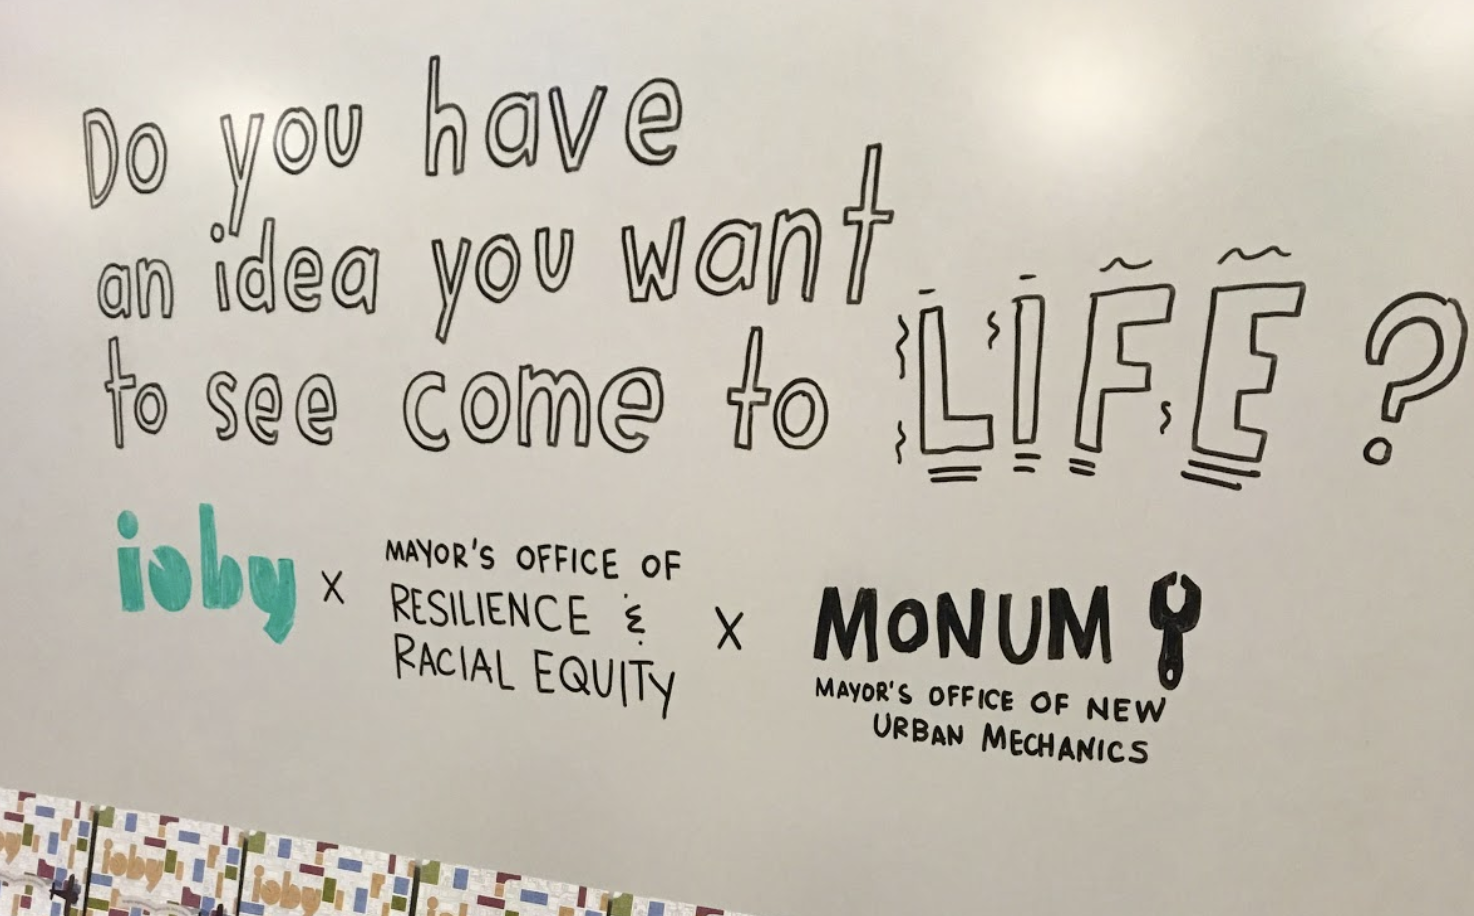 Do you have
an idea you want
to see come to LIFE?
ioby x MAYOR'S OFFICE OF
RESILIENCE &
RACIAL EQUITY
x MONUM
MAYOR'S OFFICE OF NEW
URBAN MECHANICS
ioby
ioby